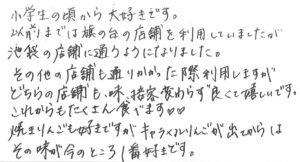 小学生の頃から大好きです。
以前までは旗の台の店舗を利用していましたが
池袋の店舗に通うようになりました。
その他の店舗も通りかかった際利用しますが
どちらの店舗も、味、接客変わらず良くて嬉しいです。
これからもたくさん食べます♡♡
焼きりんごも好きですがキャラメルりんごが出てからは
その味が今のところ1番好きです。